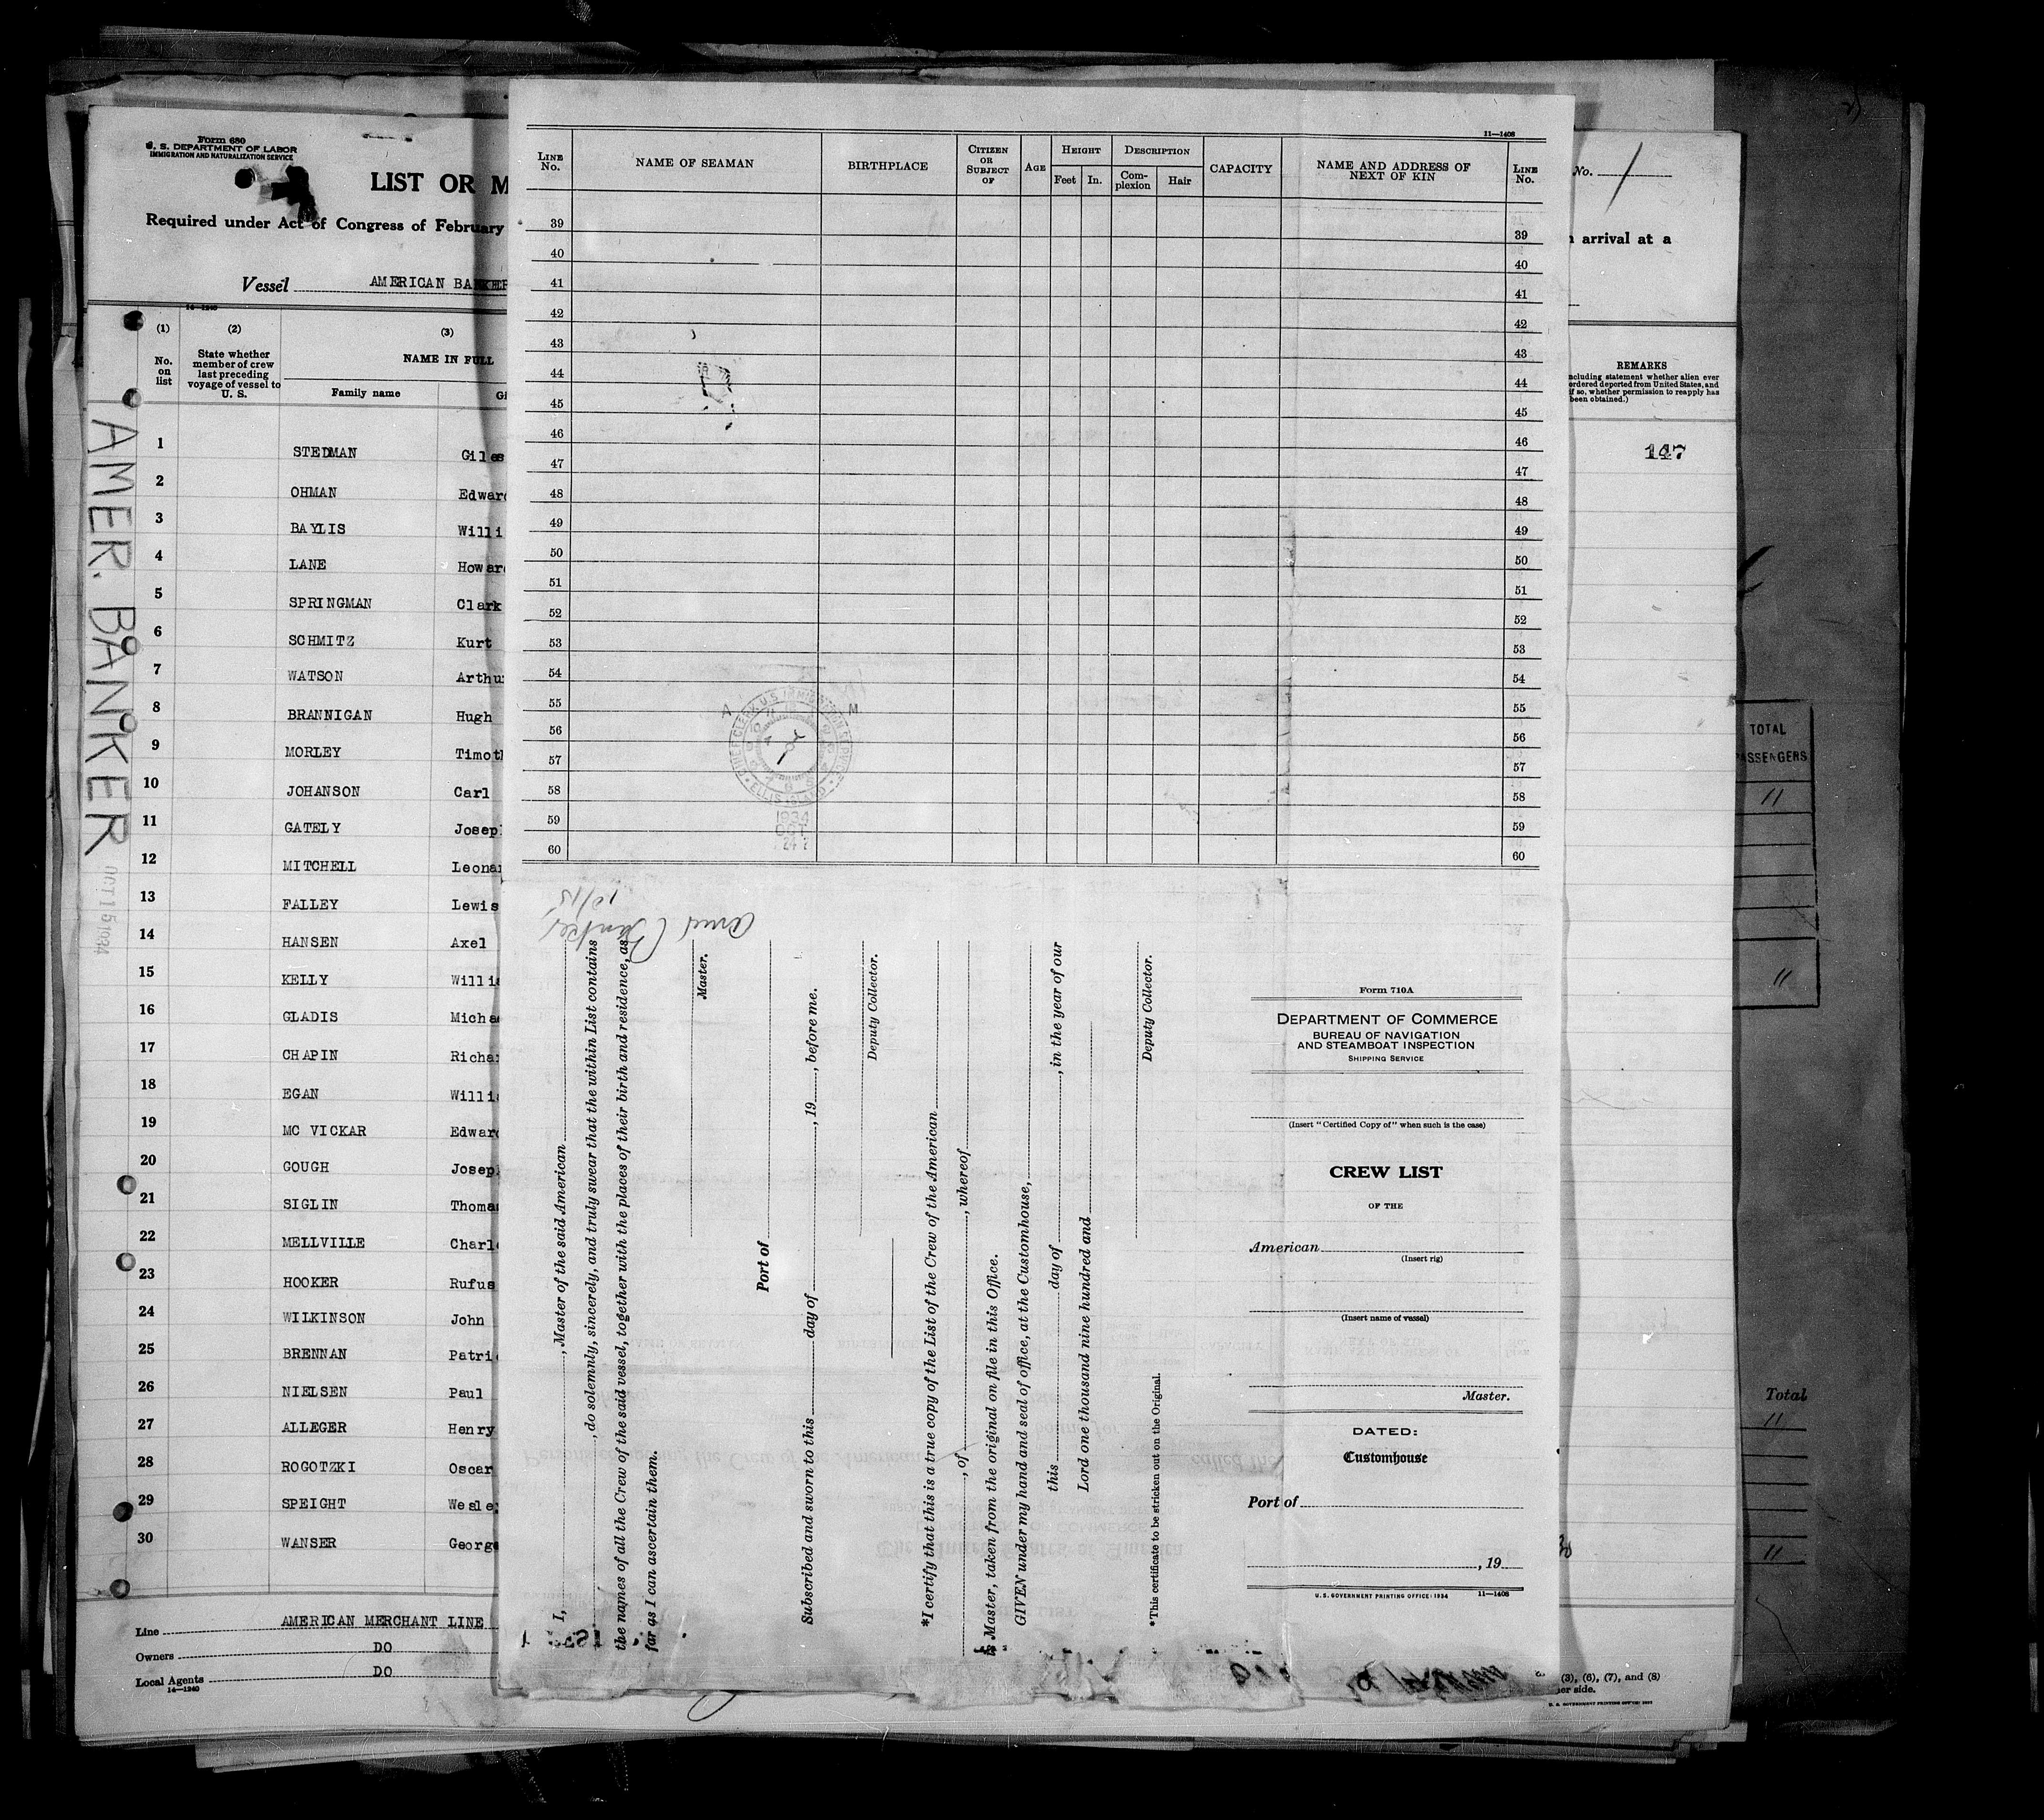 Form 680
U. S. DEPARTMENT OF LABOR
IMMIGRATION AND NATURALIZATION SERVICE
LIST OR M
Required under Act of Congress of February
Vessel AMERICAN BANKER
14—1240
(1) (2) (3)
No. on list
State whether member of crew last preceding voyage of vessel to U. S.
NAME IN FULL
Family name Gi
1 STEDMAN Giles
2 OHMAN Edward
3 BAYLIS Willi
4 LANE Howar
5 SPRINGMAN Clark
6 SCHMITZ Kurt
7 WATSON Arthu
8 BRANNIGAN Hugh
9 MORLEY Timot
10 JOHANSON Carl
11 GATELY Josep
12 MITCHELL Leona
13 FALLEY Lewis
14 HANSEN Axel
15 KELLY Willi
16 GLADIS Micha
17 CHAPIN Richa
18 EGAN Willi
19 MC VICKAR Edwar
20 GOUGH Josep
21 SIGLIN Thoma
22 MELLVILLE Charl
23 HOOKER Rufus
24 WILKINSON John
25 BRENNAN Patri
26 NIELSEN Paul
27 ALLEGER Henry
28 ROGOTZKI Oscar
29 SPEIGHT Wesle
30 WANSER George
Line AMERICAN MERCHANT LINE
Owners DO
Local Agents DO
14—1240
AMER. BANKER
OCT 15 1934
11—1408
LINE No. NAME OF SEAMAN BIRTHPLACE CITIZEN OR SUBJECT OF AGE HEIGHT DESCRIPTION CAPACITY NAME AND ADDRESS OF NEXT OF KIN LINE No.
Feet In. Complexion Hair
39 39
40 40
41 41
42 42
43 43
44 44
45 45
46 46
47 47
48 48
49 49
50 50
51 51
52 52
53 53
54 54
55 55
56 56
57 57
58 58
59 59
60 60
A M
CHIEF CLERK U.S. IMMIGRATION SERVICE
ELLIS ISLAND
1934
OCT
24
Amer Banker
10/15
I, , Master of the said American
, do solemnly, sincerely, and truly swear that the within List contains
the names of all the Crew of the said vessel, together with the places of their birth and residence, as
far as I can ascertain them.
Master.
Port of
Subscribed and sworn to this day of , 19 , before me.
Deputy Collector.
*I certify that this is a true copy of the List of the Crew of the American
, of , whereof
is Master, taken from the original on file in this Office.
GIVEN under my hand and seal of office, at the Customhouse,
this day of , in the year of our
Lord one thousand nine hundred and
Deputy Collector.
*This certificate to be stricken out on the Original.
Form 710A
DEPARTMENT OF COMMERCE
BUREAU OF NAVIGATION
AND STEAMBOAT INSPECTION
SHIPPING SERVICE
(Insert "Certified Copy of" when such is the case)
CREW LIST
OF THE
American
(Insert rig)
(Insert name of vessel)
Master.
DATED:
Customhouse
Port of
, 19
U. S. GOVERNMENT PRINTING OFFICE: 1934 11—1408
No. 1
arrival at a
REMARKS
ncluding statement whether alien ever
ordered deported from United States, and
if so, whether permission to reapply has
been obtained.)
147
(3), (6), (7), and (8)
er side.
TOTAL
PASSENGERS
11
11
Total
11
11